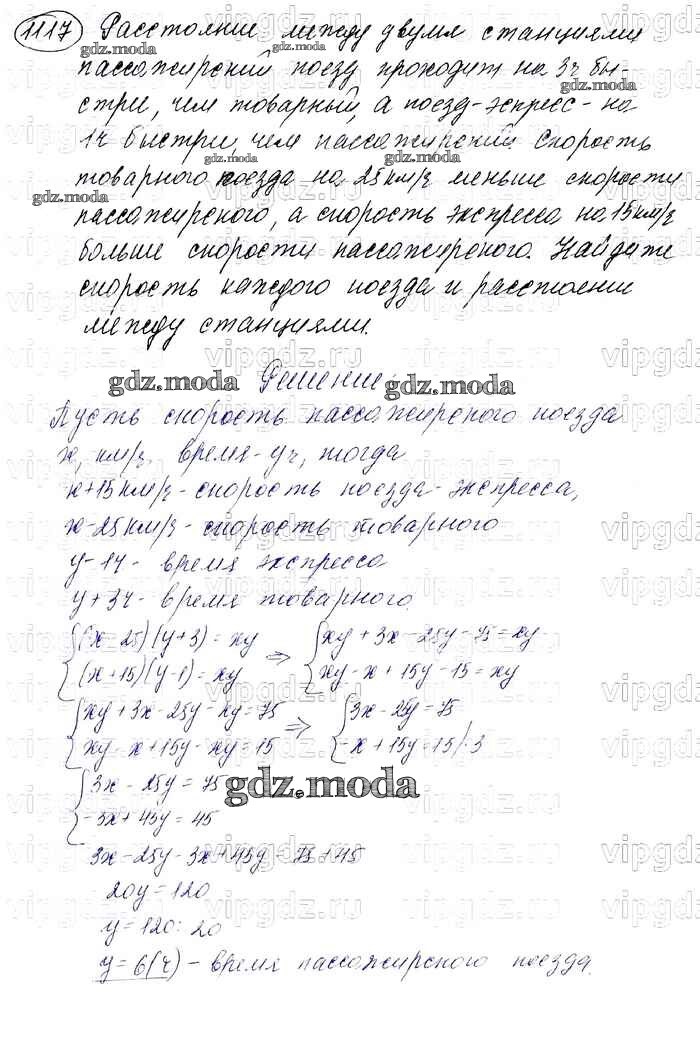 1117 Расстояние между двумя станциями
пассажирский поезд проходит на 3ч бы-
стри, чем товарный, а поезд-экспресс - на
1ч быстри, чем пассажирский. Скорость
товарного поезда на 25 км/ч меньше скорости
пассажирского, а скорость экспресса на 15 км/ч
больше скорости пассажирского. Найдите
скорость каждого поезда и расстояние
между станциями.
Решение.
Пусть скорость пассажирского поезда
x, км/ч, время - y ч, тогда
x+15 км/ч - скорость поезда-экспресса,
x-25 км/ч - скорость товарного
y-1ч - время экспресса
y+3ч - время товарного.
{(x-25)(y+3)=xy ⇒ {xy+3x-25y-75=xy
{(x+15)(y-1)=xy {xy-x+15y-15=xy
{xy+3x-25y-xy=75 ⇒ {3x-25y=75
{xy-x+15y-xy=15 {-x+15y=15/·3
{3x-25y=75
{-3x+45y=45
3x-25y-3x+45y=75+45
20y=120
y=120:20
y=6(ч) - время пассажирского поезда.
gdz.moda
vipgdz.ru